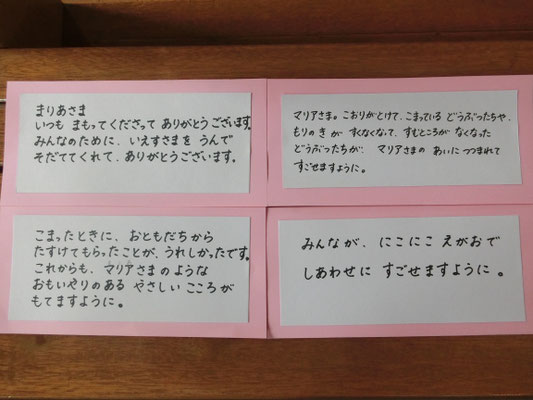 まりあさま
いつも まもってくださって ありがとうございます。
みんなのために、いえすさまを うんで
そだててくれて、ありがとうございます。
マリアさま。こおりがとけて、こまっている どうぶつたちや、
もりの き が すくなくなって、すむところが なくなった
どうぶつたちが、 マリアさまの あいに つつまれて
すごせますように。
こまったときに、おともだちから
たすけてもらったことが、うれしかったです。
これからも、マリアさまのような
おもいやりのある やさしい こころが
もてますように。
みんなが、にこにこ えがおで
しあわせに すごせますように。